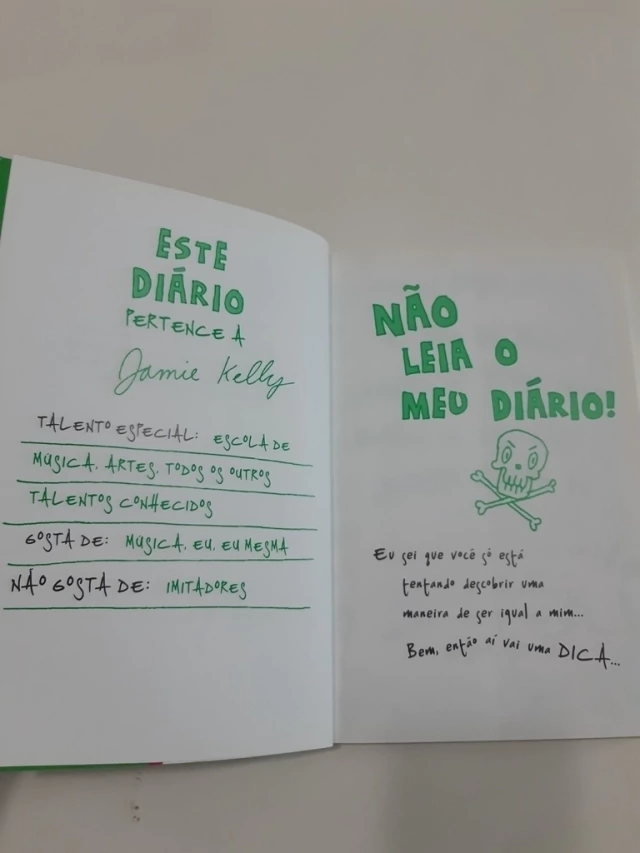 ESTE
DIÁRIO
PERTENCE A
Jamie Kelly
TALENTO ESPECIAL: ESCOLA DE
MÚSICA, ARTES, TODOS OS OUTROS
TALENTOS CONHECIDOS
GOSTA DE: MÚSICA, EU, EU MESMA
NÃO GOSTA DE: IMITADORES
NÃO
LEIA O
MEU DIÁRIO!
Eu sei que você só está
tentando descobrir uma
maneira de ser igual a mim...
Bem, então aí vai uma DICA...